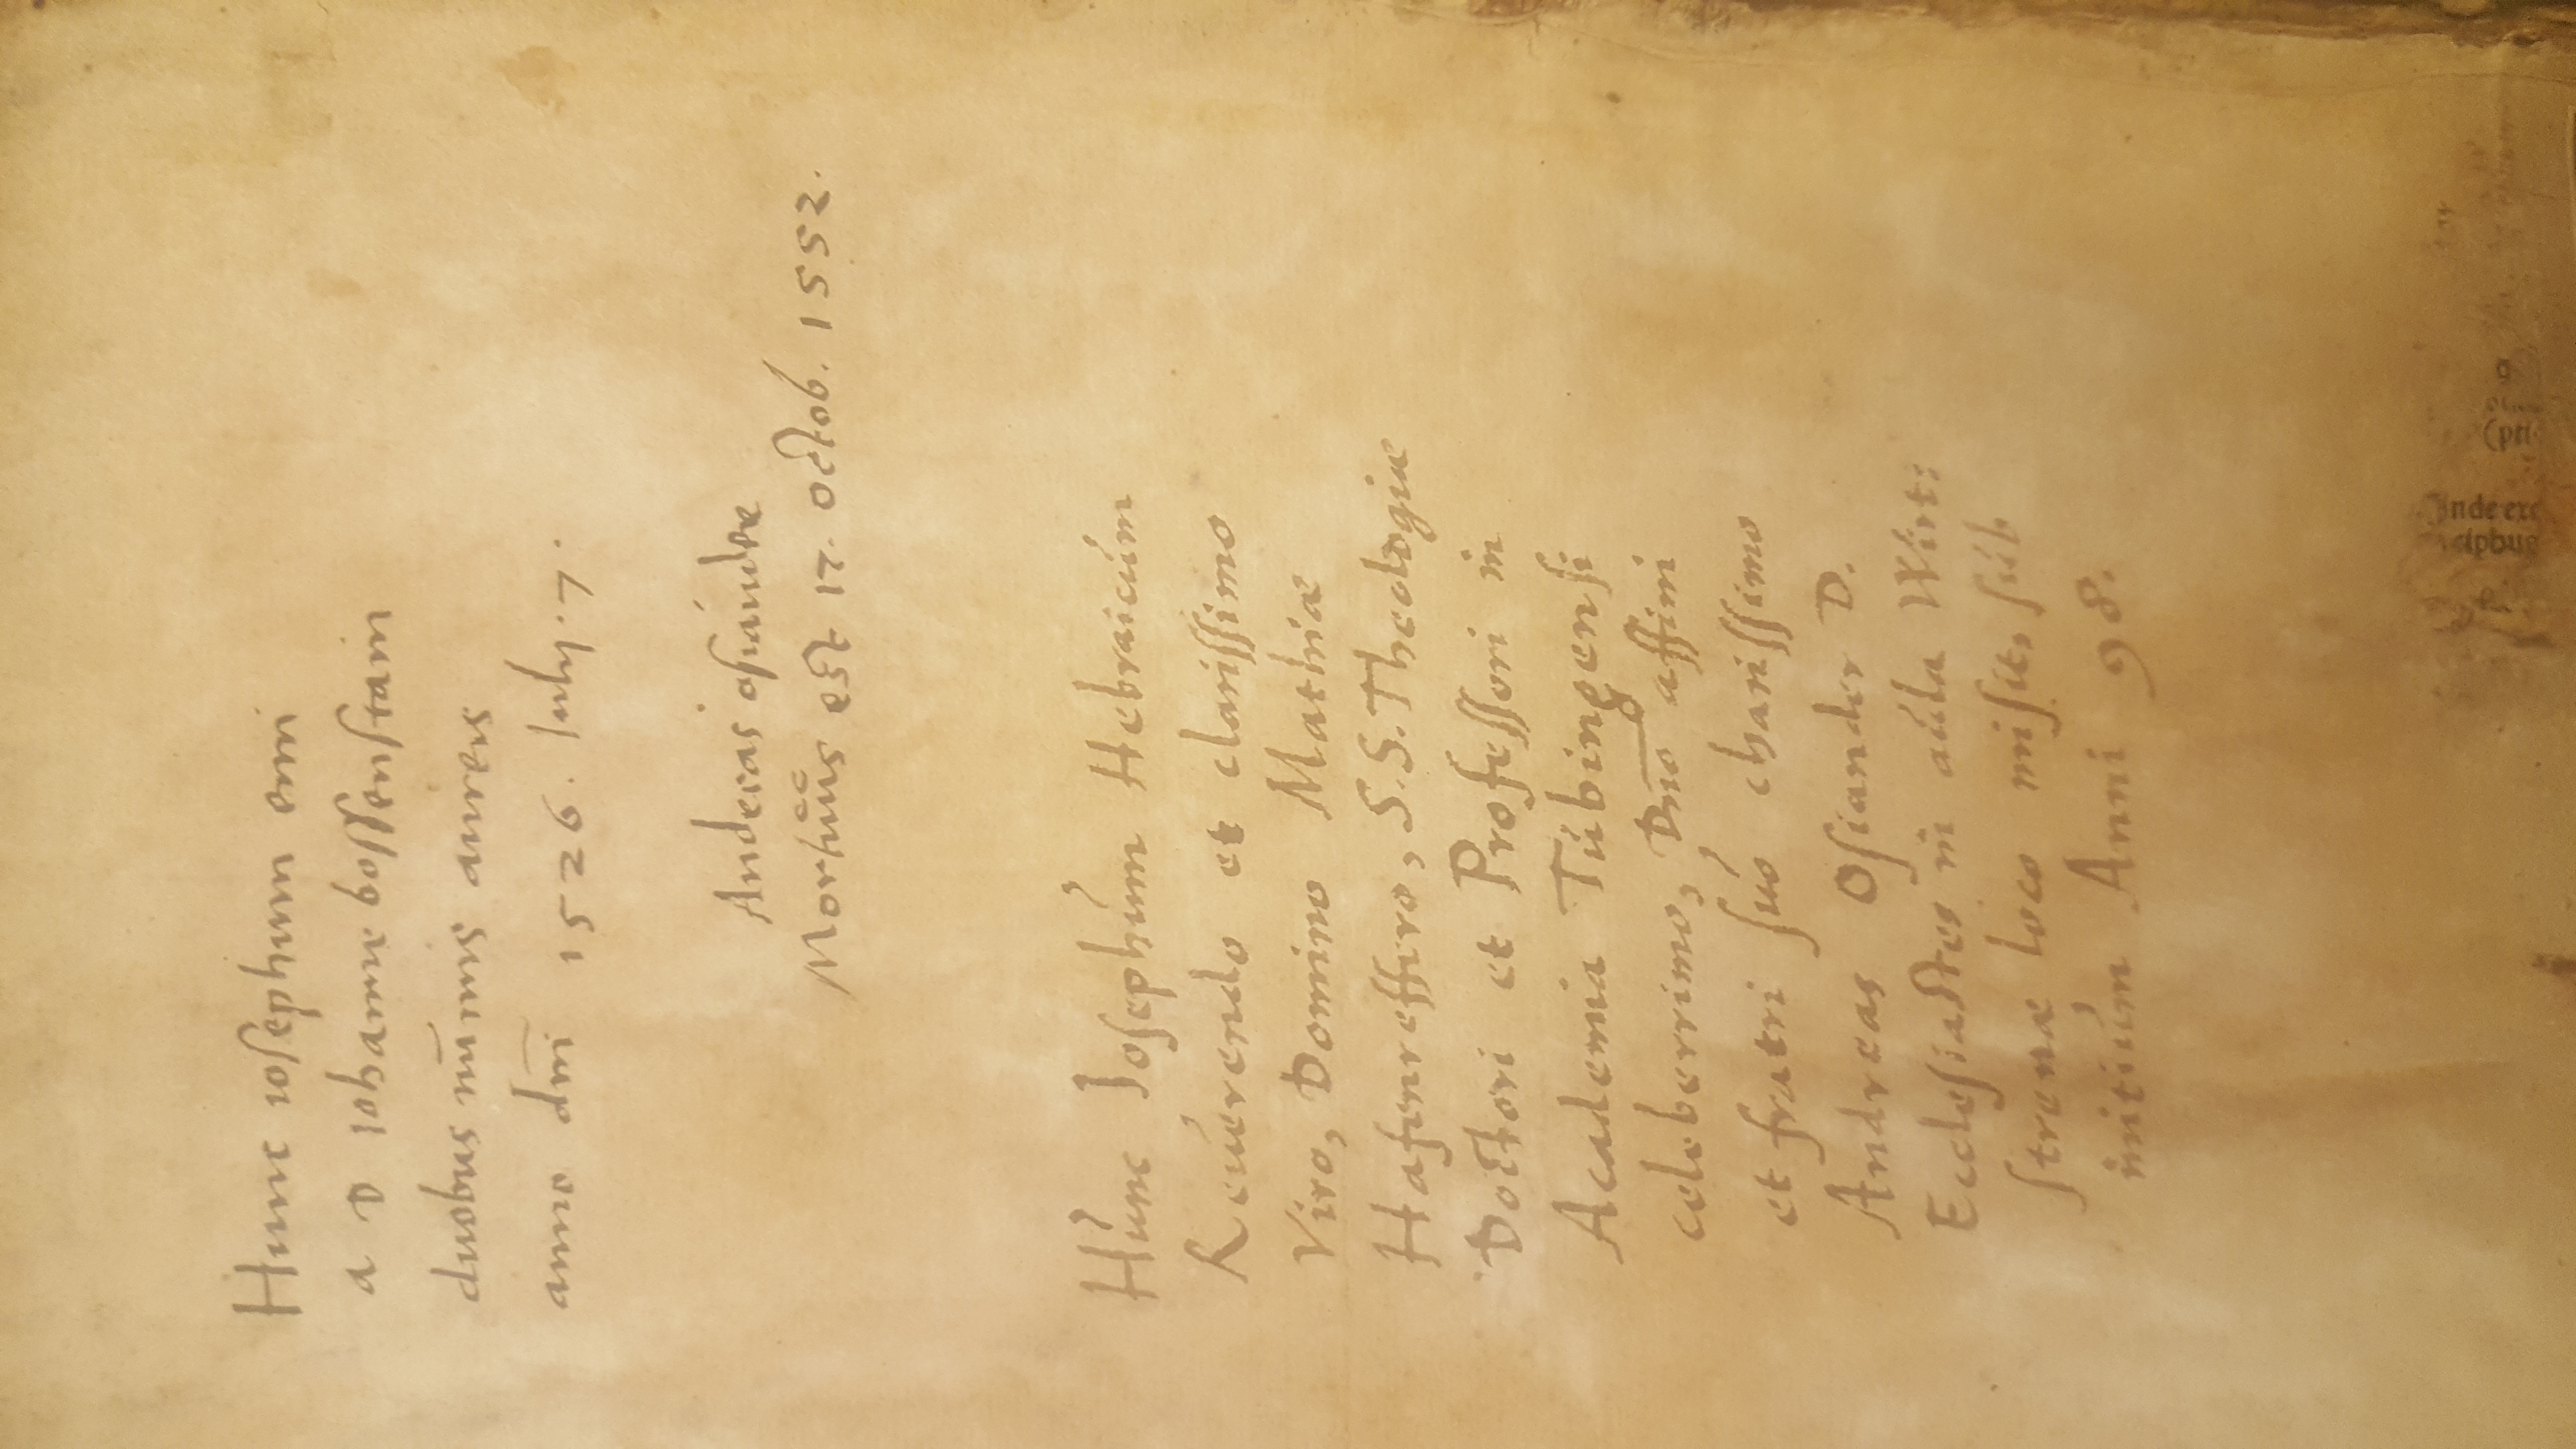 Hunc iosephum emi
a D iohanne bossenstain
duobus nũmis aureis
anno dni 1526. Iulij. 7.
Andreas osiander
Mortuus est 17. octob. 1552.
Hunc Iosephum Hebraicum
Reuerendo et clarissimo
Viro, Domino Mathiæ
Hafenreffero, S.S. Theologiæ
Doctori et Professori in
Academia Tubingensi
celeberrimo, Dno affini
et fratri suo charissimo
Andreas Osiander D.
Ecclesiastes in aula Wirt:
strenæ loco misit, sub
initium Anni 98.
(pri
Inde exc
cipbus